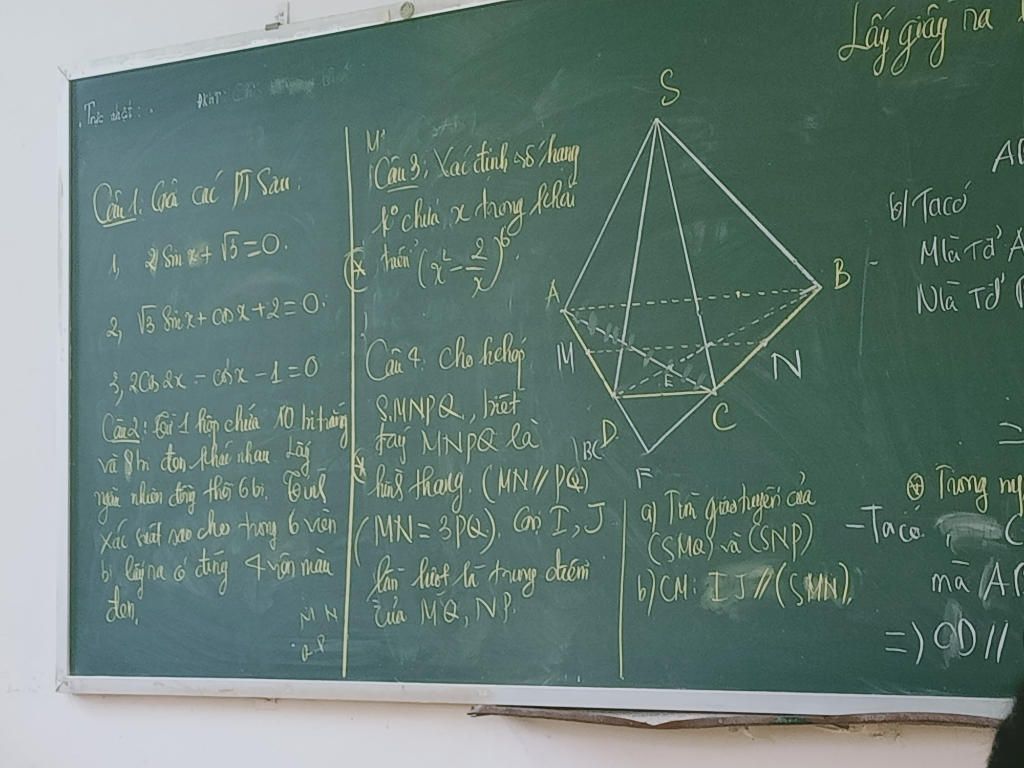 Lấy giấy ra
Trực nhật:
Câu 1. Giải các PT Sau.
1, 2 Sin x + √3 = 0.
2, √3 Sin x + cos x + 2 = 0.
3, 2Cos 2x - cos x - 1 = 0
Câu 2: Từ 1 hộp chứa 10 bi trắng
và 8 bi đen khác nhau Lấy
ngẫu nhiên đồng thời 6 bi. Tính
xác suất sao cho trong 6 viên
bi lấy ra có đúng 4 viên màu
đen.
M N
Q P
Câu 3: Xác định số hạng
k° chứa x trong khai
triển (x² - 2/x)⁶.
Câu 4. Cho h chóp
S.MNPQ, biết
đáy MNPQ là
hình thang. (MN // PQ)
(MN = 3PQ). Gọi I, J
lần lượt là trung điểm
của MQ, NP.
S
A
B
M
N
E
D
C
F
BC
a) Tìm giao tuyến của
(SMQ) và (SNP)
b) CM: IJ // (SMN).
b) Ta có
M là TĐ A
N là TĐ
Trong
- Ta có
mà
=) CD //